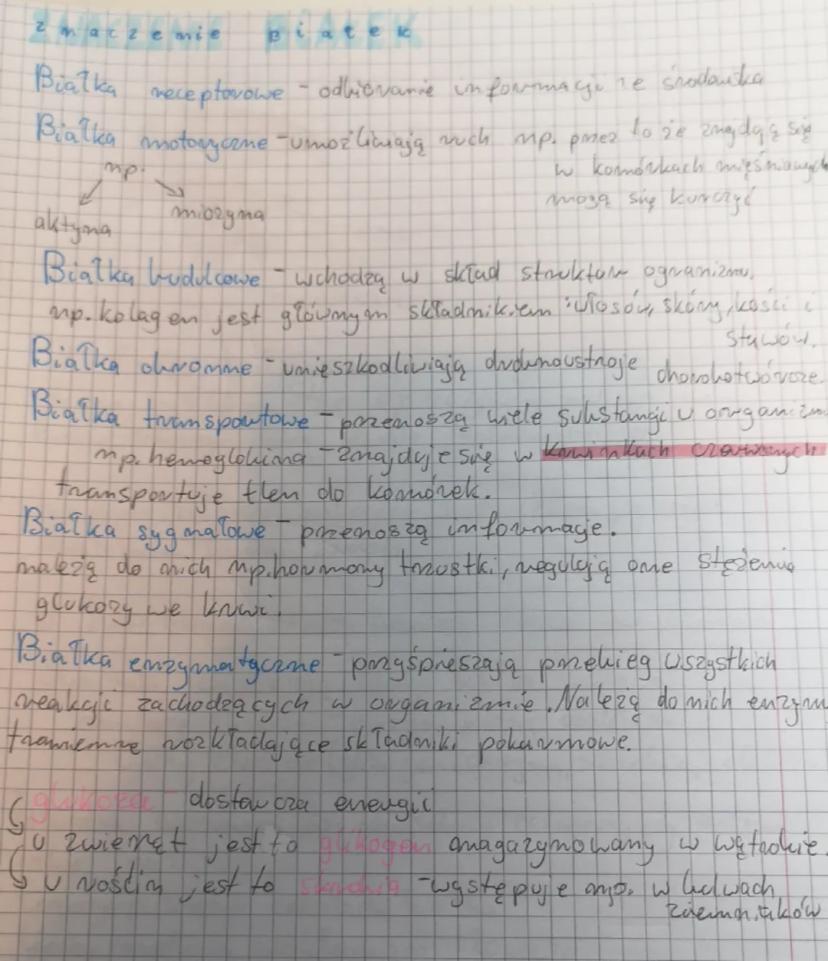 Znaczenie białek
Białka receptorowe - odbieranie informacji ze środowiska
Białka motoryczne - umożliwiają ruch np. przez to że znajdują się
w komórkach mięśniowych
np. mogą się kurczyć
aktyna miozyna
Białka budulcowe - wchodzą w skład struktur organizmu,
np. kolagen jest głównym składnikiem włosów, skóry, kości i
stawów.
Białka ochronne - unieszkodliwiają drobnoustroje chorobotwórcze.
Białka transportowe - przenoszą wiele substancji w organizm
np. hemoglobina - znajduje się w krwinkach czerwonych
transportuje tlen do komórek.
Białka sygnałowe - przenoszą informacje.
należą do nich np. hormony trzustki, regulują one stężenie
glukozy we krwi.
Białka enzymatyczne - przyśpieszają przebieg wszystkich
reakcji zachodzących w organizmie. Należą do nich enzym
trawienne rozkładające składniki pokarmowe.
glukoza - dostawcza energii
u zwierząt jest to glikogen magazynowany w wątrobie.
u roślin jest to skrobia - występuje np. w bulwach
ziemniaków